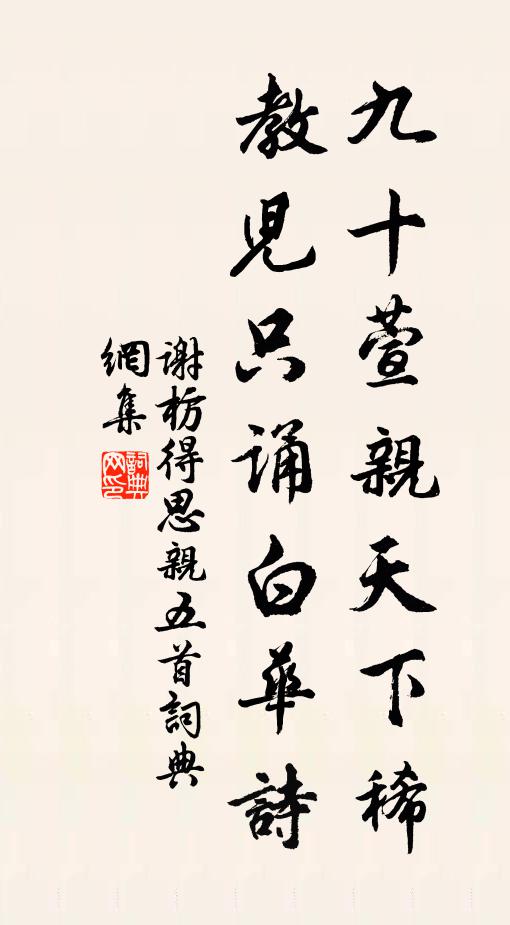 九十萱親天下稀
教兒只誦白華詩
谢枋得思親五首詞典
網集
詞典網印